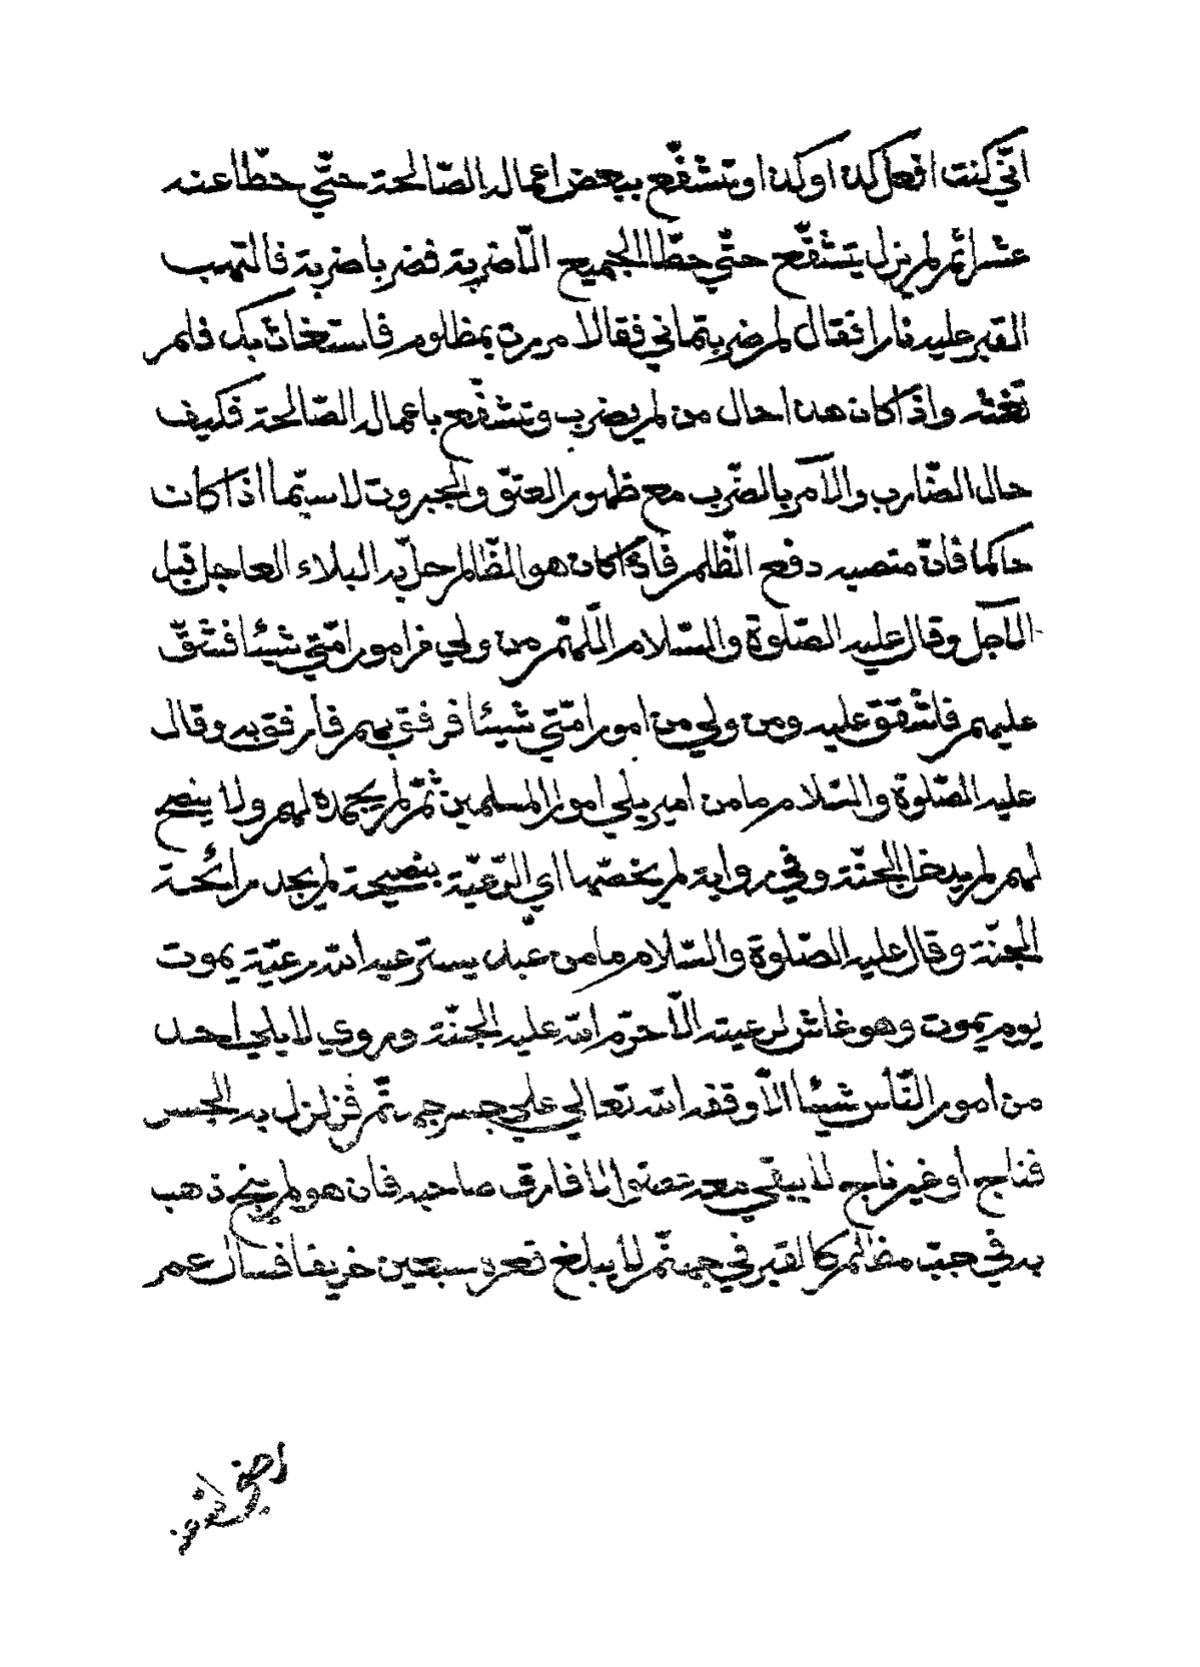 انّي كنت افعل كذا وكذا وتشفّع ببعض اعماله الصّالحة حتّي حطّا عنه
عشرا ثم لم يزل يتشفّع حتّي حطّا الجميع الّا ضربة فضرباه ضربة فالتهب
القبر عليه نارا فقال لم ضربتماني فقالا مررت بمظلوم فاستغاث بك فلم
تغثه واذا كان هذا حال من لم يضرب وتشفّع باعماله الصّالحة فكيف
حال الضّارب والآمر بالضّرب مع ظهور العتوّ والجبروت لا سيّما اذا كان
حاكما فانّ منصبه دفع الظّلم فاذا كان هو الظّالم حلّ به البلاء العاجل قبل
الآجل وقال عليه الصّلوة والسّلام اللّهمّ من ولي من امور امّتي شيئا فشقّ
عليهم فاشقق عليه ومن ولي من امور امّتي شيئا فرفق بهم فارفق به وقال
عليه الصّلوة والسّلام ما من امير يلي امور المسلمين ثمّ لم يجهد لهم ولا ينصح
لهم لم يدخل الجنّة وفي رواية لم يخصّها اي الرّعيّة بنصيحة لم يجد رائحة
الجنّة وقال عليه الصّلوة والسّلام ما من عبد يسترعيه الله رعيّة يموت
يوم يموت وهو غاش لرعيته الّا حرّم الله عليه الجنّة وروي لا يلي احد
من أمور النّاس شيئا الّا وقفه الله تعالي علي جسر جهنّم فزلزل به الجسر
فناج أو غير ناج لا يبقي معه عضو الا فارق صاحبه فان هو لم ينج ذهب
به في جبّ مظلم كالقبر في جهنّم لا يبلغ قعره سبعين خريفا فسال عمر